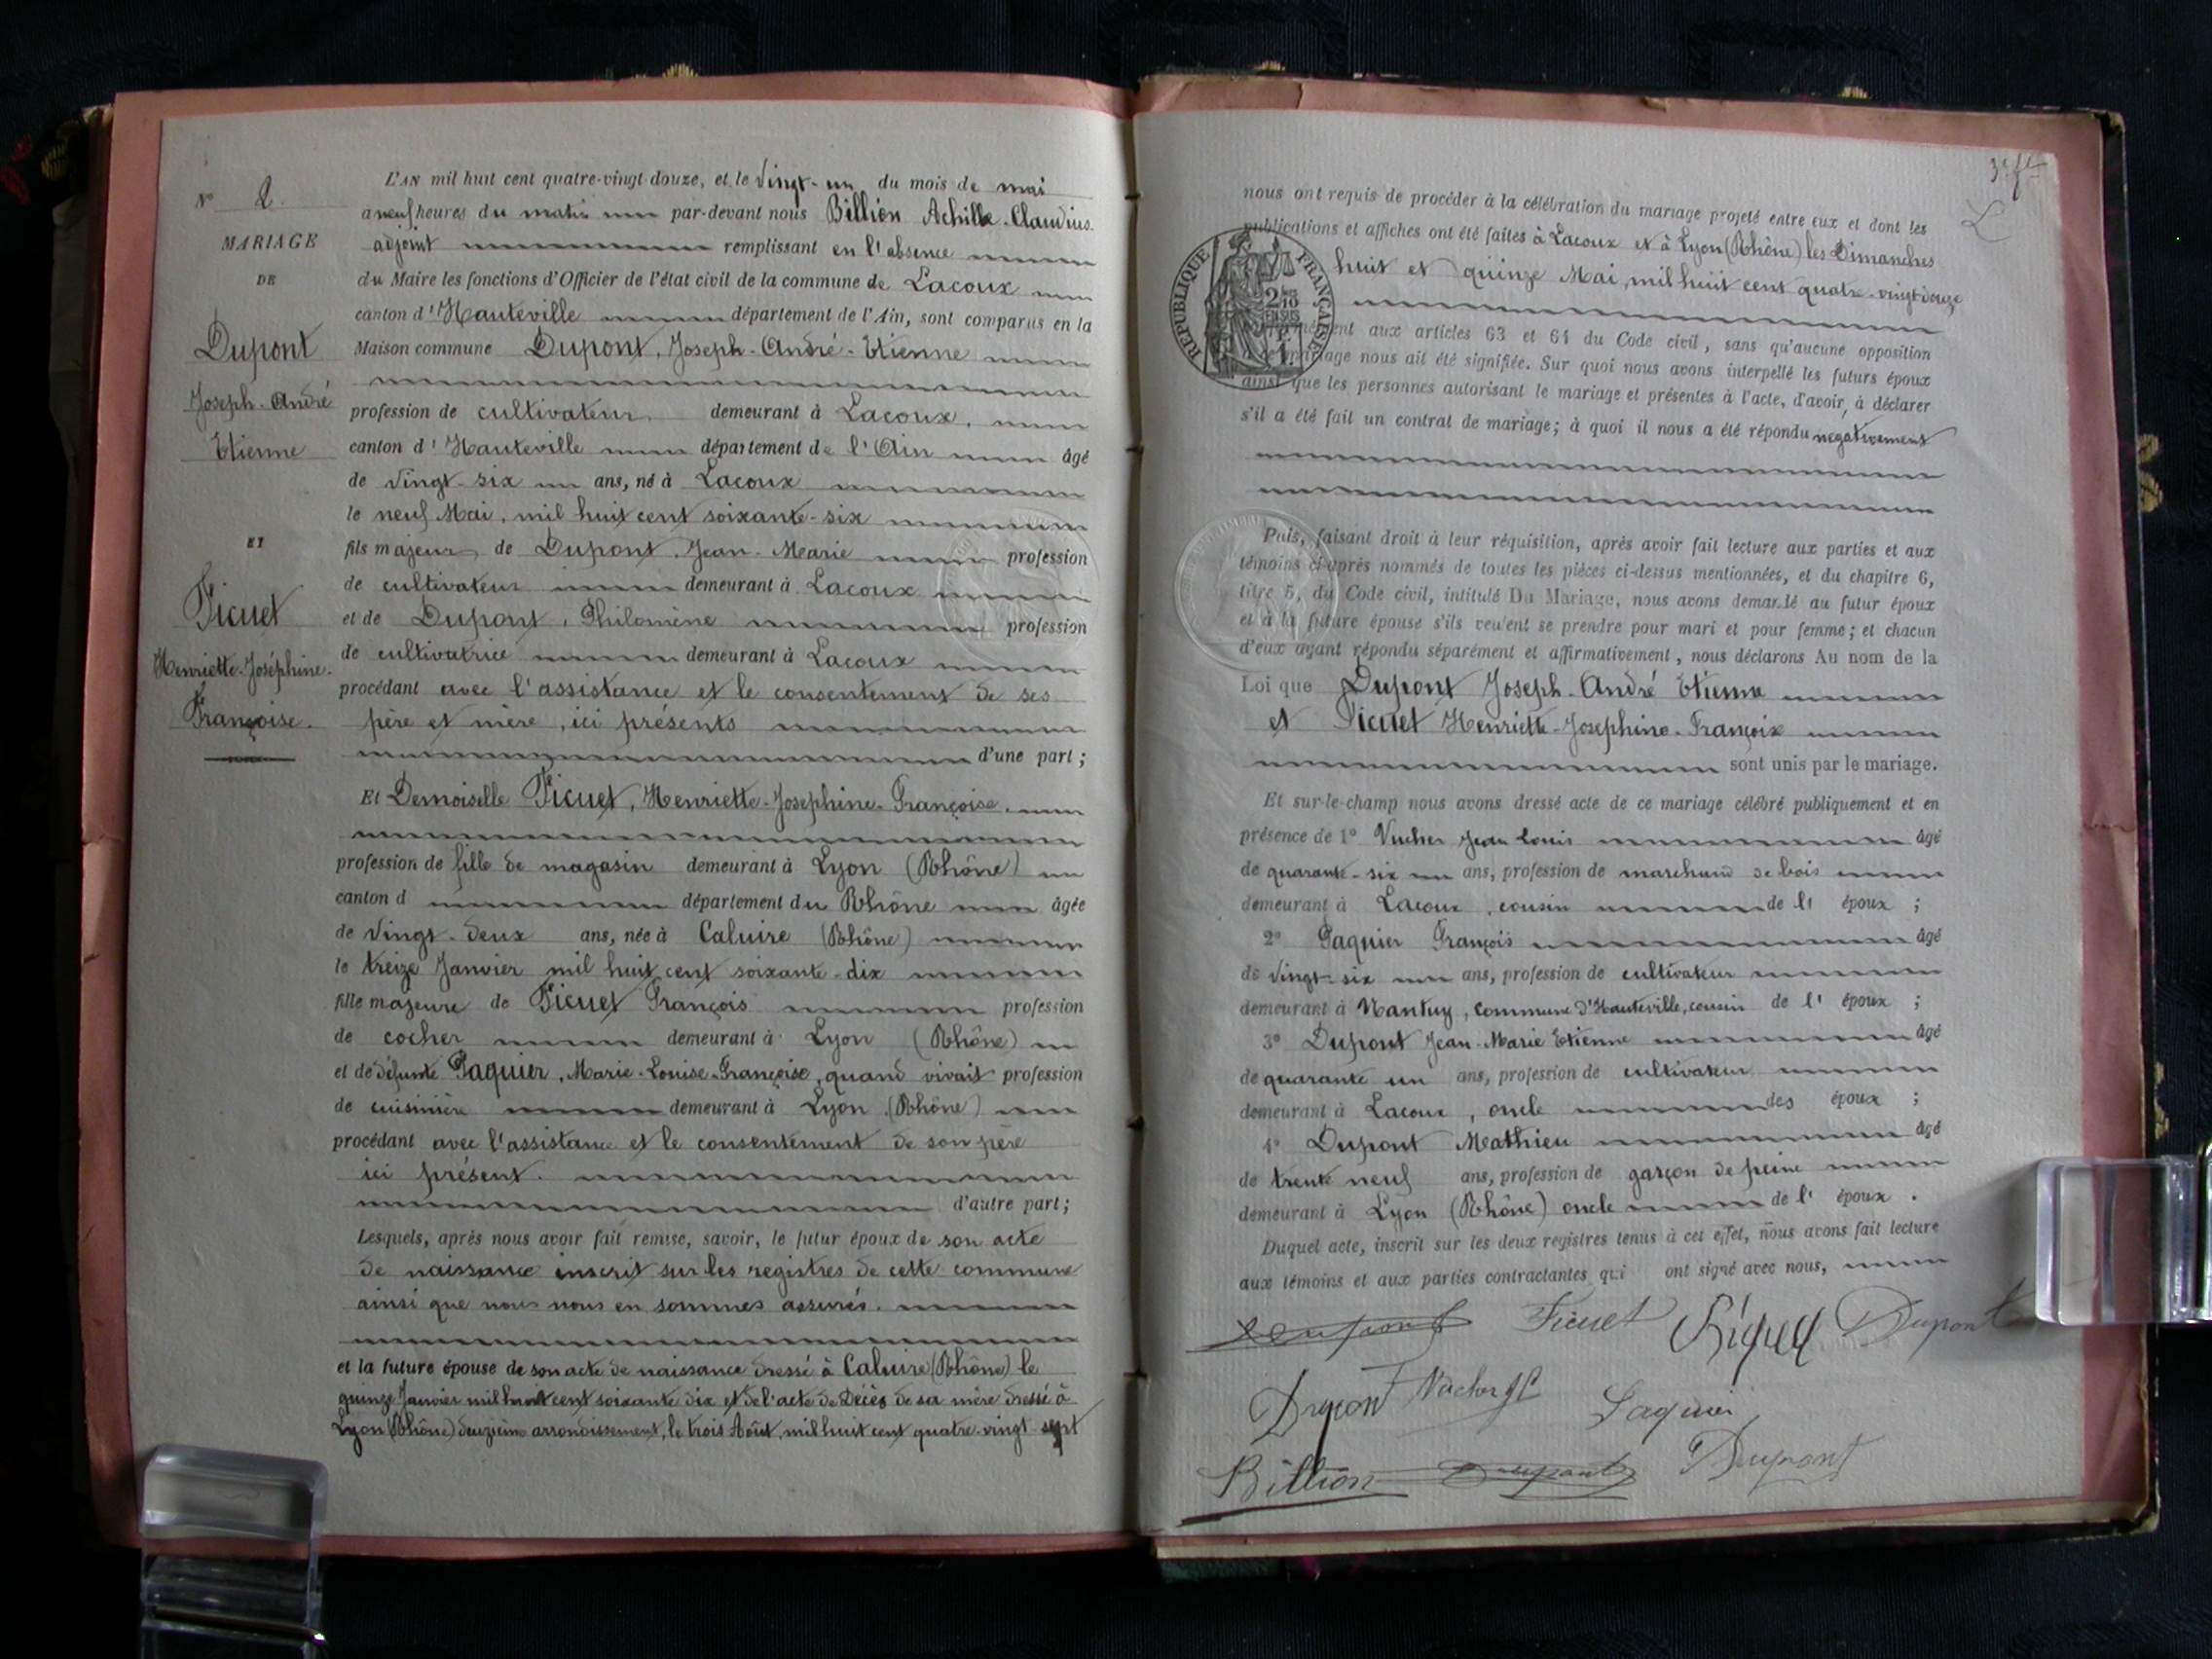 N° 2.
MARIAGE
DE
Dupont
Joseph-André
Etienne
ET
Ficuet
Henriette-Joséphine-
Françoise.
L'AN mil huit cent quatre-vingt-douze, et le Vingt-un du mois de mai
a neuf heures du matin par-devant nous Billion Achille-Claudius
adjoint remplissant en l'absence
du Maire les fonctions d'Officier de l'état civil de la commune de Lacoux
canton d'Hauteville département de l'Ain, sont comparus en la
Maison commune Dupont, Joseph-André-Etienne
profession de cultivateur. demeurant à Lacoux,
canton d'Hauteville département de l'Ain âgé
de Vingt-six ans, né à Lacoux
le neuf Mai, mil huit cent soixante-six
fils majeur de Dupont, Jean-Marie profession
de cultivateur demeurant à Lacoux
et de Dupont, Philomène profession
de cultivatrice demeurant à Lacoux
procédant avec l'assistance et le consentement de ses
père et mère, ici présents
d'une part;
Et Demoiselle Ficuet, Henriette-Josephine-Françoise,
profession de fille de magasin demeurant à Lyon (Rhône)
canton d département du Rhône âgée
de Vingt-deux ans, née à Caluire (Rhône)
le treize Janvier mil huit cent soixante-dix
fille majeure de Ficuet François profession
de cocher demeurant à Lyon (Rhône)
et de défunte Paquier, Marie-Louise-Françoise, quand vivait profession
de cuisinière demeurant à Lyon (Rhône)
procédant avec l'assistance et le consentement de son père
ici présent.
d'autre part;
Lesquels, après nous avoir fait remise, savoir, le futur époux de son acte
de naissance inscrit sur les registres de cette commune
ainsi que nous nous en sommes assurés.
et la future épouse de son acte de naissance dressé à Caluire (Rhône) le
quinze Janvier mil huit cent soixante dix et de l'acte de Décès de sa mère dressé à
Lyon (Rhône) deuxième arrondissement, le trois Août, mil huit cent quatre-vingt-sept
nous ont requis de procéder à la célébration du mariage projeté entre eux et dont les
publications et affiches ont été faites à Lacoux et à Lyon (Rhône) les Dimanches
huit et quinze Mai, mil huit cent quatre-vingt-douze
RÉPUBLIQUE FRANÇAISE
aux articles 63 et 64 du Code civil, sans qu'aucune opposition
mariage nous ait été signifiée. Sur quoi nous avons interpellé les futurs époux
ainsi que les personnes autorisant le mariage et présentes à l'acte, d'avoir à déclarer
s'il a été fait un contrat de mariage; à quoi il nous a été répondu négativement
Puis, faisant droit à leur réquisition, après avoir fait lecture aux parties et aux
témoins ci-après nommés de toutes les pièces ci-dessus mentionnées, et du chapitre 6,
titre 5, du Code civil, intitulé Du Mariage, nous avons demandé au futur époux
et à la future épouse s'ils veulent se prendre pour mari et pour femme; et chacun
d'eux ayant répondu séparément et affirmativement, nous déclarons Au nom de la
Loi que Dupont Joseph-André Etienne
et Ficuet Henriette-Josephine-Françoise
sont unis par le mariage.
Et sur-le-champ nous avons dressé acte de ce mariage célébré publiquement et en
présence de 1° Vucher Jean Louis âgé
de quarante-six ans, profession de marchand de bois
demeurant à Lacoux, cousin de l' époux;
2° Paquier François âgé
de Vingt-six ans, profession de cultivateur
demeurant à Nantuy, commune d'Hauteville, cousin de l' époux;
3° Dupont Jean-Marie Etienne âgé
de quarante un ans, profession de cultivateur
demeurant à Lacoux, oncle des époux;
4° Dupont Mathieu âgé
de trente neuf ans, profession de garçon de peine
demeurant à Lyon (Rhône) oncle de l' époux.
Duquel acte, inscrit sur les deux registres tenus à cet effet, nous avons fait lecture
aux témoins et aux parties contractantes qui ont signé avec nous,
Dupont Ficuet Dupont
Dupont Paquier
Billion Dupont Dupont